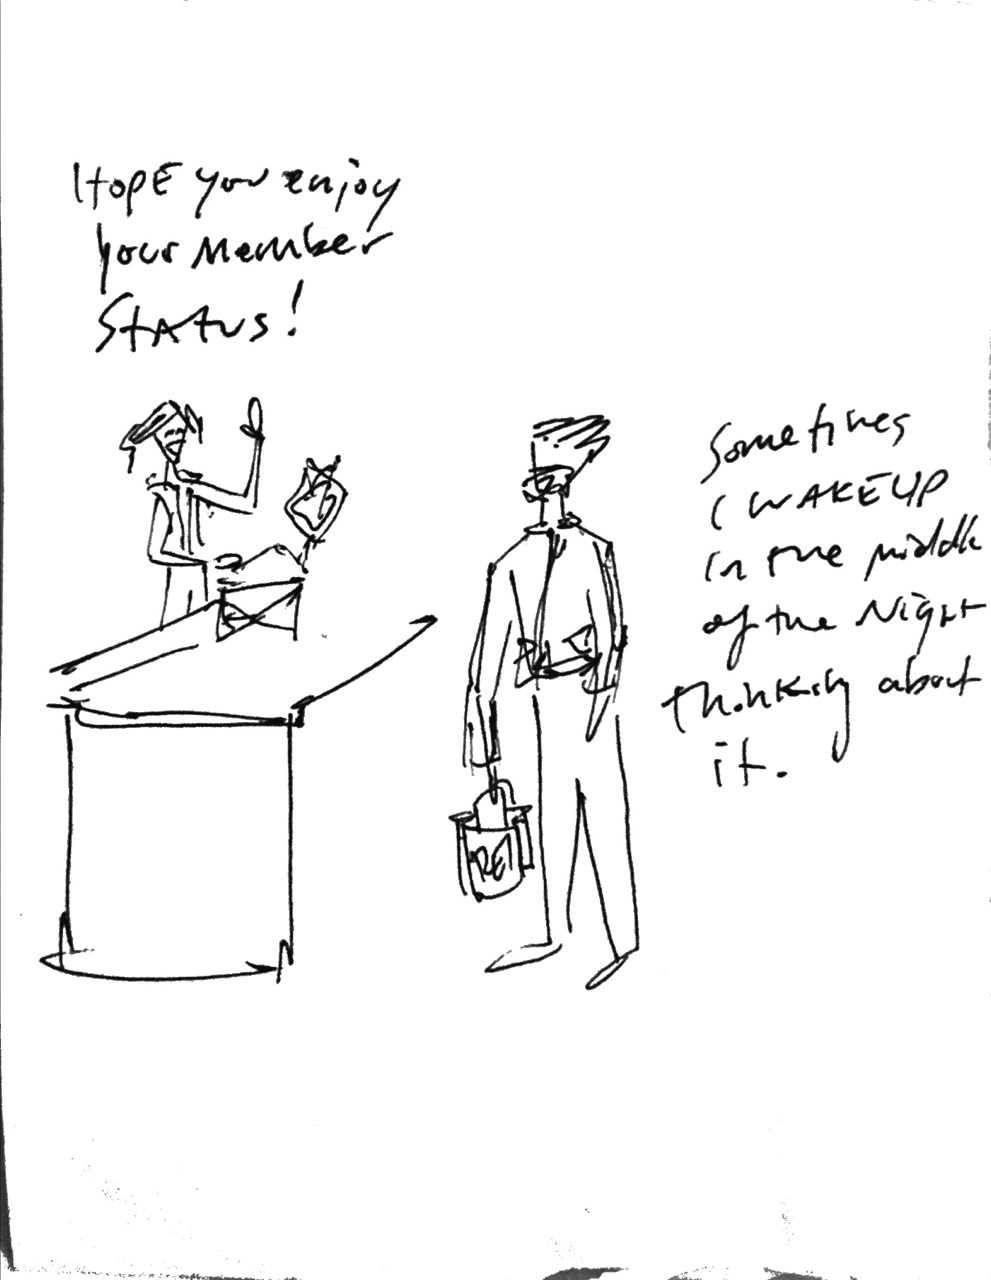 HOPE you enjoy
your Member
Status!
Sometimes
I WAKE UP
in the middle
of the Night
thinking about
it.
REI